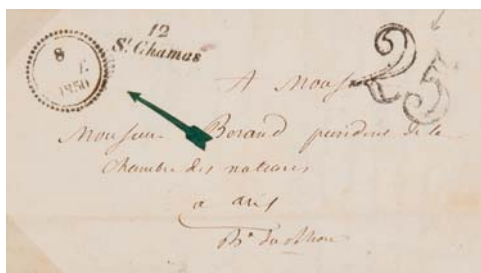 12
St. Chamas
8
1850
25
A Mons
Monsieur Boraud president de la
Chambre des notaires
a
Bes du Rhone